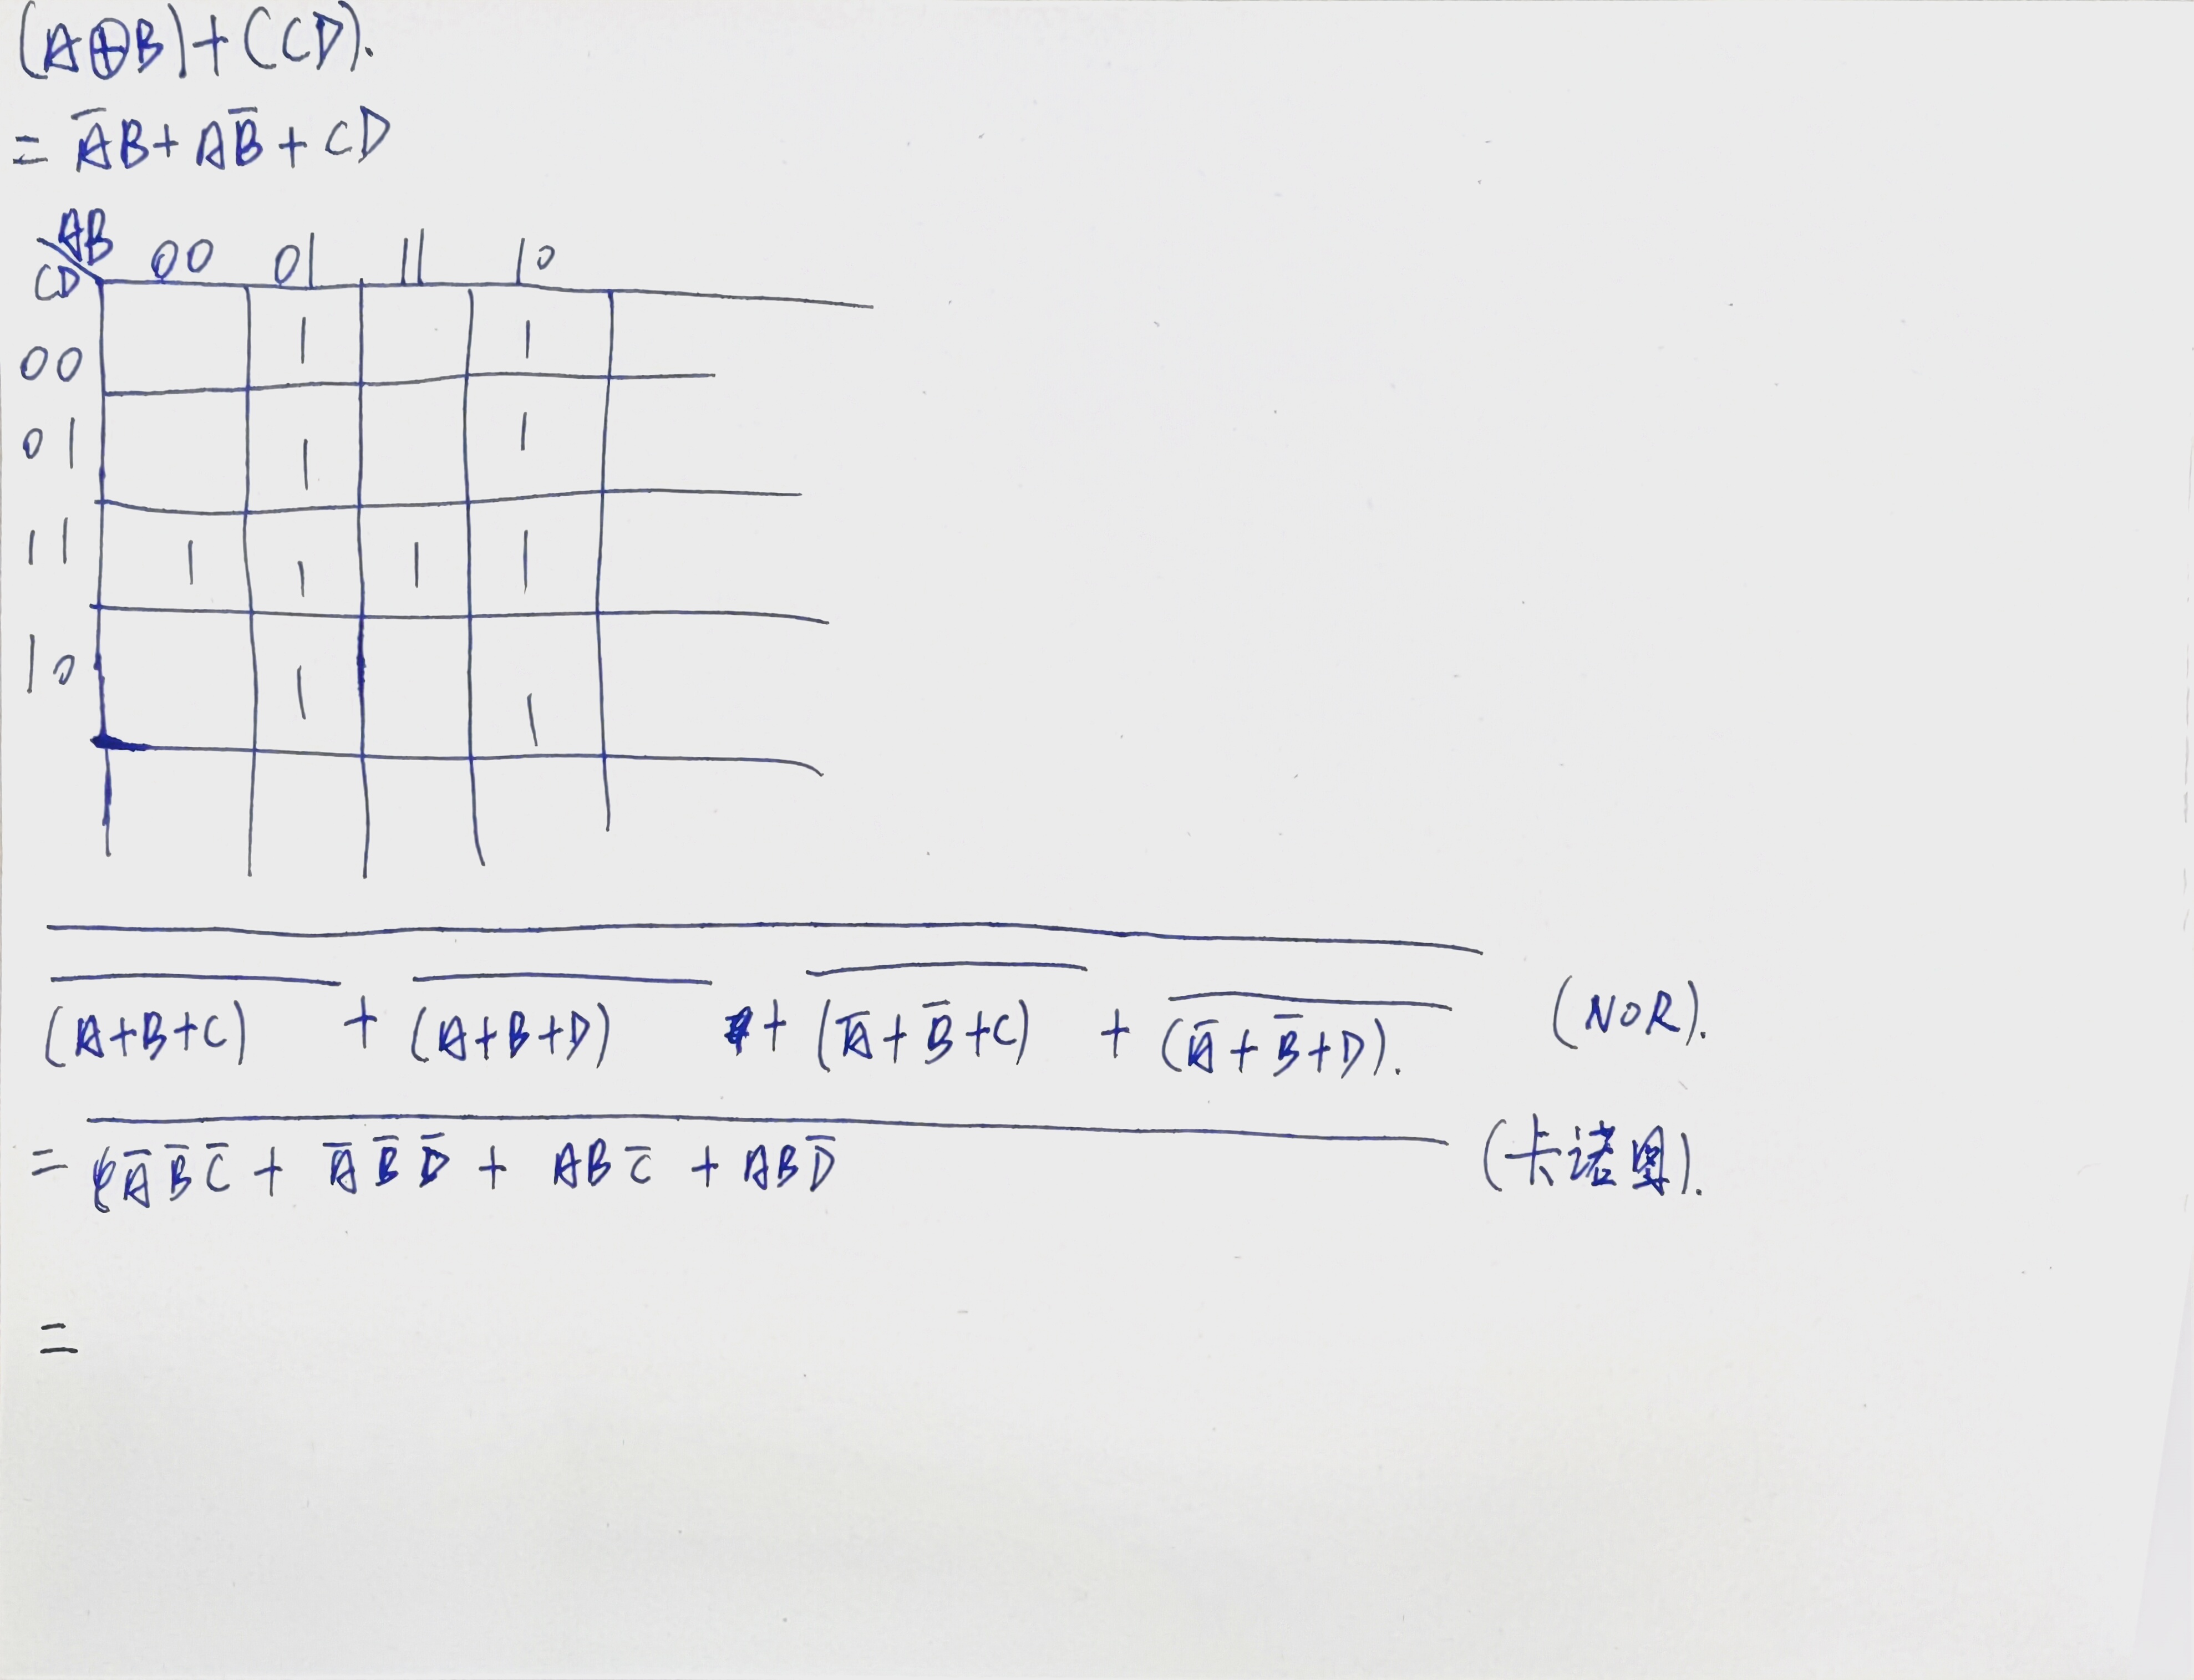 (A⊕B)+(CD).
= A̅B+AB̅+CD
AB 00 01 11 10
CD
00 1 1
01 1 1
11 1 1 1 1
10 1 1
(A+B+C) + (A+B+D) + (A̅+B̅+C) + (A̅+B̅+D). (NOR).
= A̅B̅C̅ + A̅B̅D̅ + ABC̅ + ABD̅ (卡诺图).
=